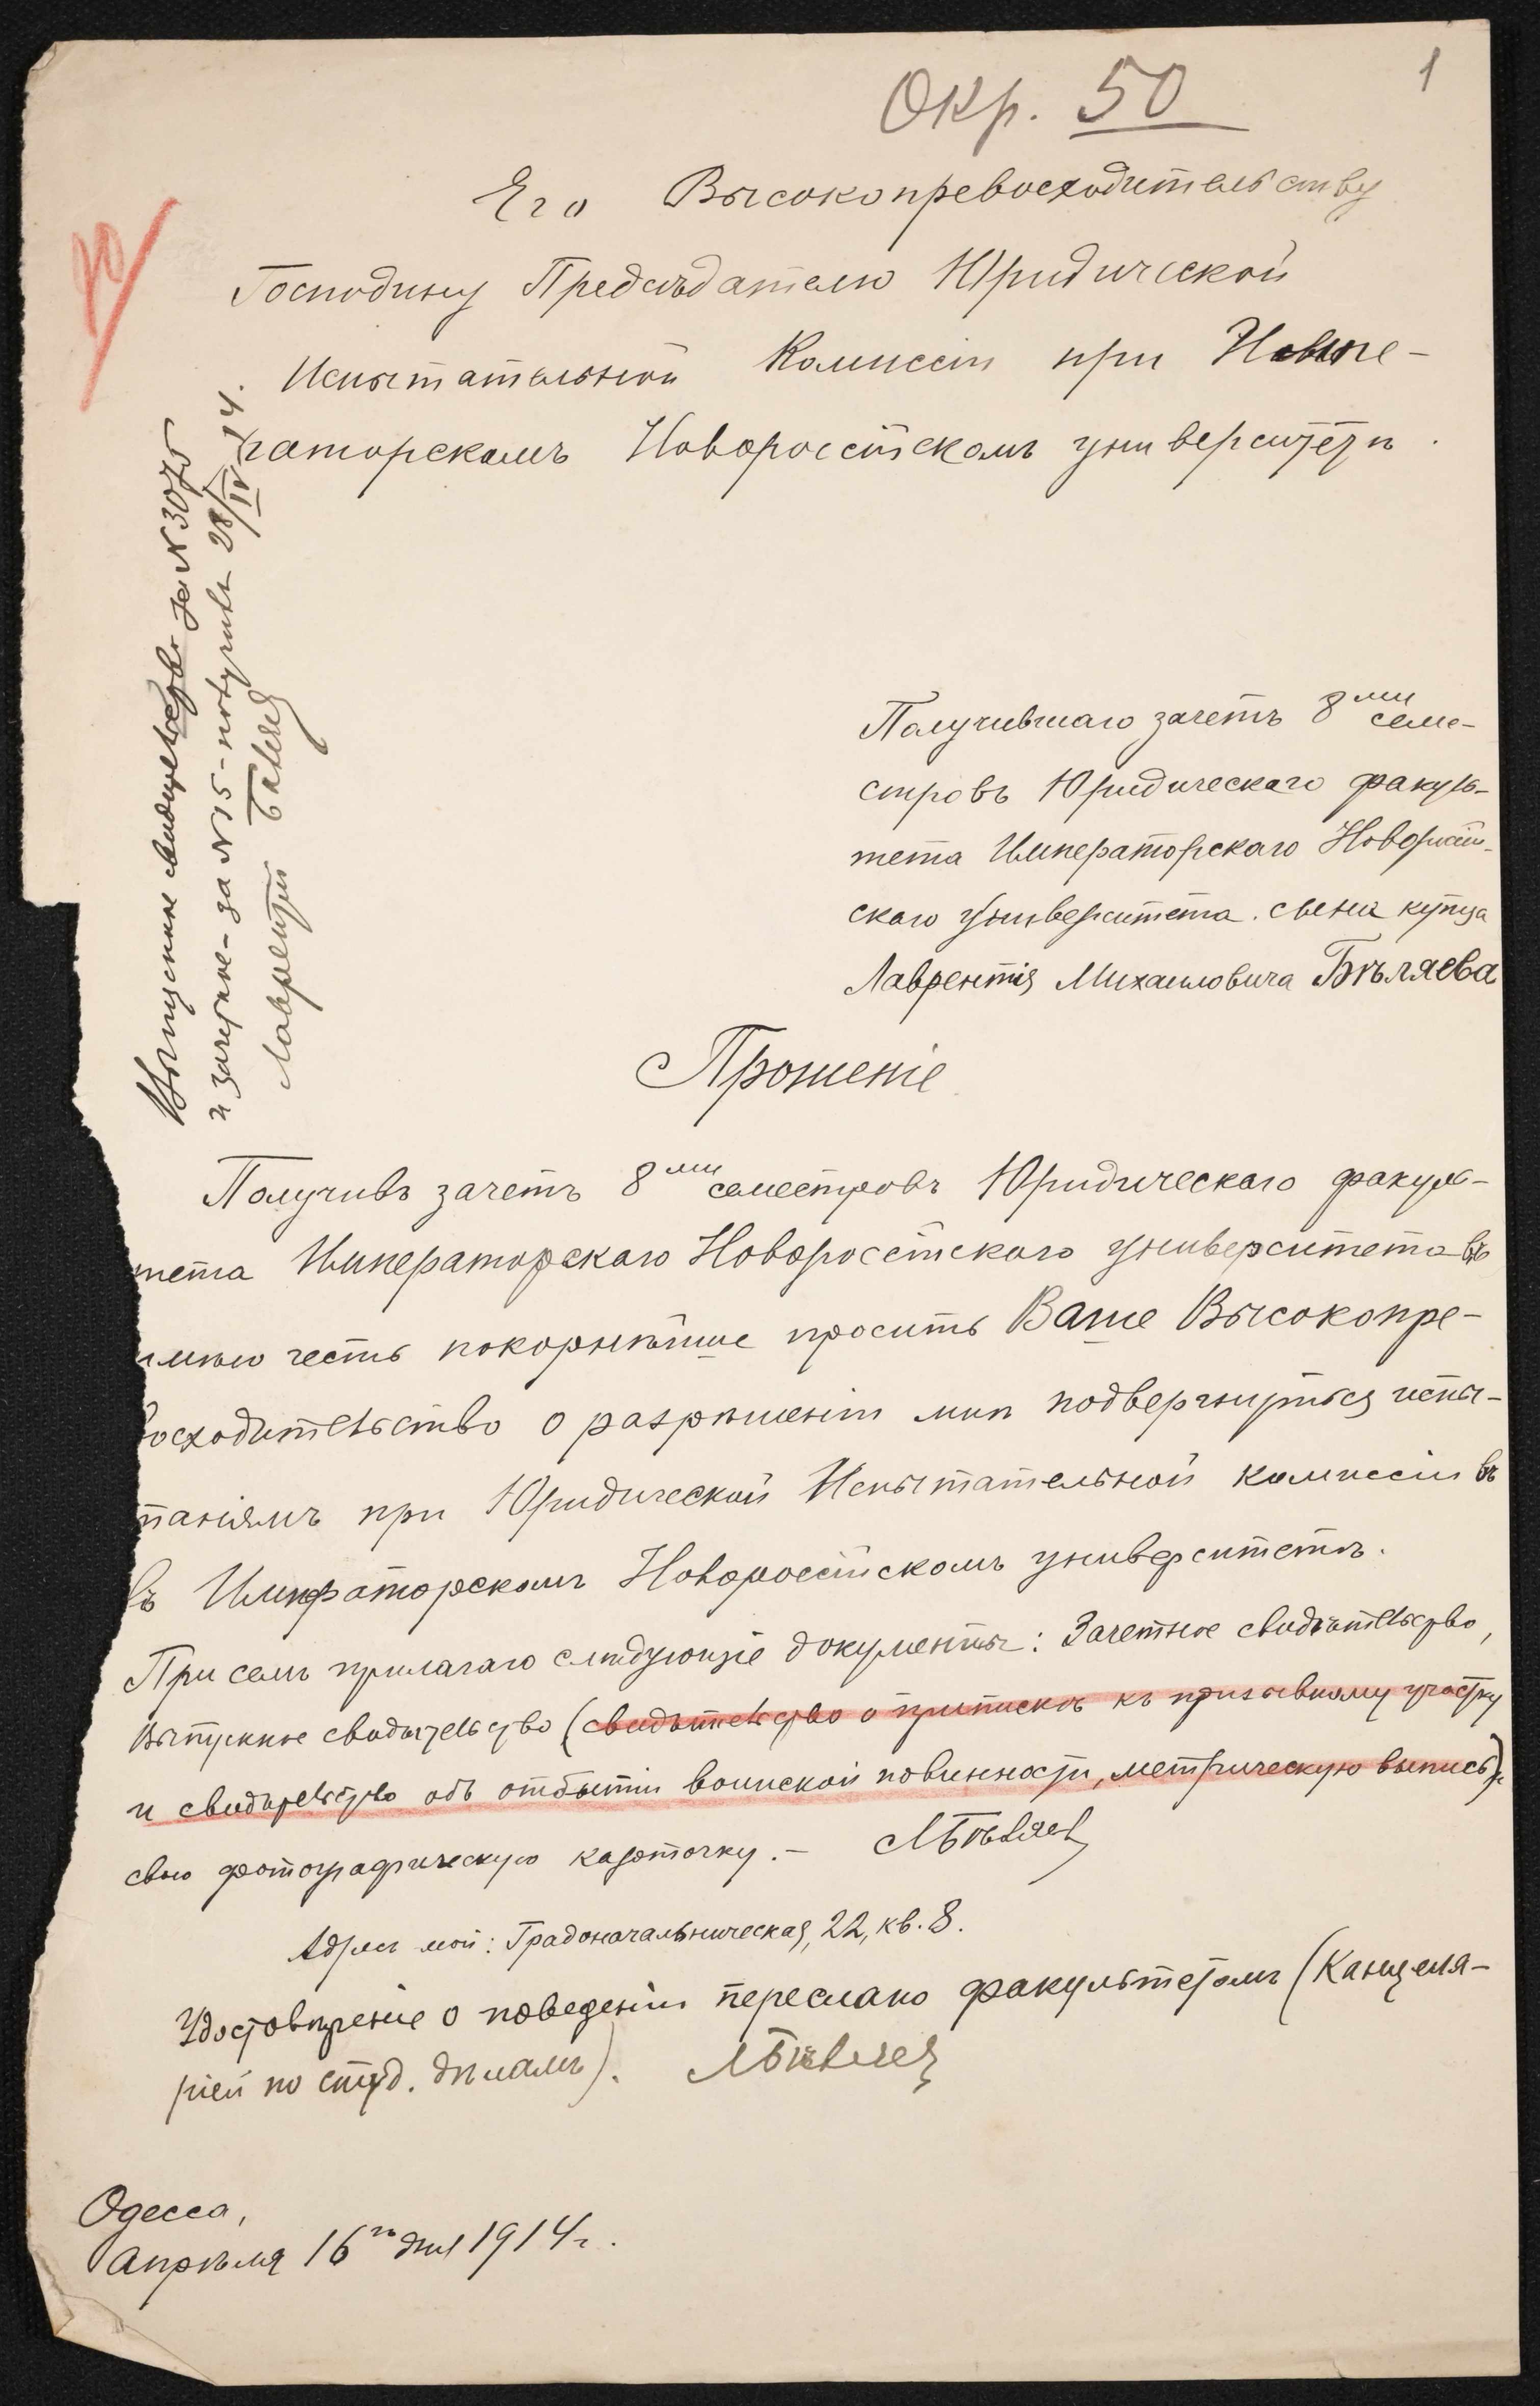 1
Окр. 50
Его Высокопревосходительству
Господину Предсѣдателю Юридической
Испытательной Комиссіи при Импе-
раторскомъ Новороссійскомъ университетѣ.
Выпускное свидѣтельство за № 3075
и зачетное - за № 15 - получилъ 28/IV 14.
Лаврентій Бѣляев
Получившаго зачетъ 8ми семе-
стровъ Юридическаго факуль-
тета Императорскаго Новоросій-
скаго Университета. сына купца
Лаврентія Михаиловича Бѣляева
Прошеніе
Получивъ зачетъ 8ми семестровъ Юридическаго факуль-
тета Императорскаго Новоросійскаго университета
имѣю честь покорнѣйше просить Ваше Высокопре-
восходительство о разрѣшеніи мнѣ подвергнуться испы-
таніямъ при Юридической Испытательной комиссіи въ
въ Императорскомъ Новоросійскомъ университетѣ.
При семъ прилагаю слѣдующіе документы: Зачетное свидѣтельство,
Выпускное свидѣтельство (свидѣтельство о припискѣ къ призывному участку
и свидѣтельство объ отбытіи воинской повинности, метрическую выпись) и
свою фотографическую карточку. - ЛБѣляев
Адресъ мой: Градоначальническая, 22, кв. 8.
Удостовѣреніе о поведеніи переслано факультетомъ (Канцеля-
ріей по студ. дѣламъ). ЛБѣляев
Одесса,
Апрѣля 16го дня 1914 г.